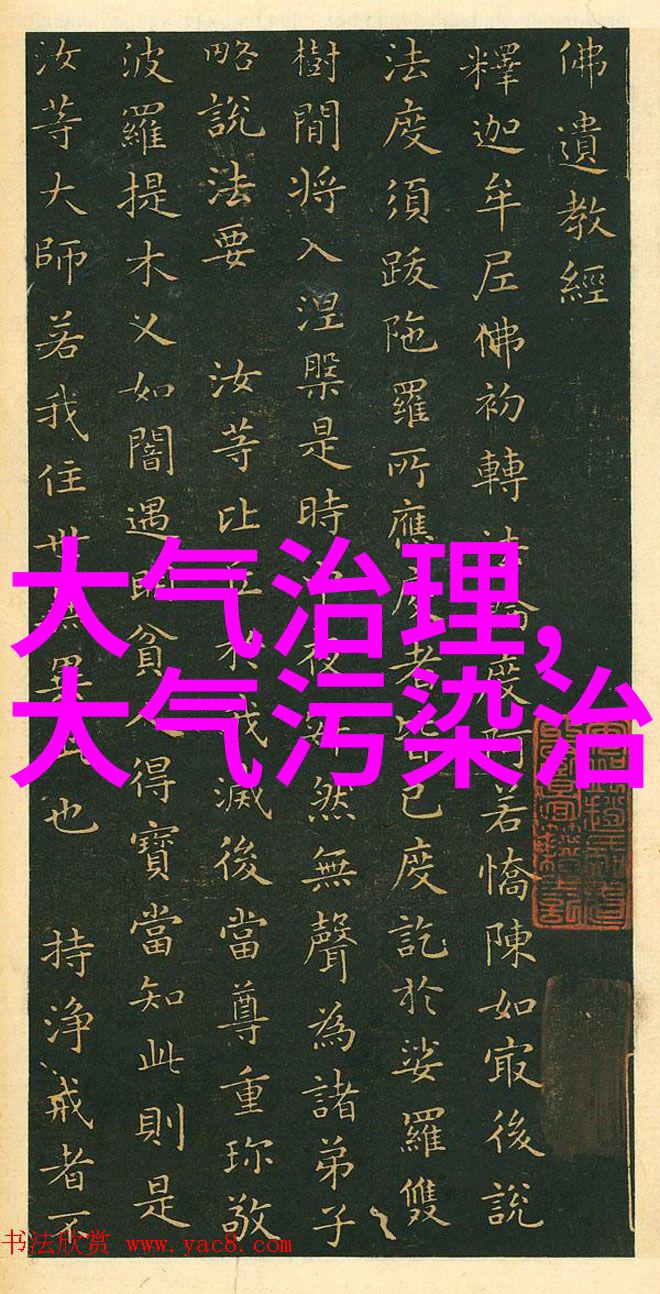 佛遺教經
釋迦牟尼佛初轉法輪度阿若憍陳如冣後說
法度須跋陁羅所應度者皆已度訖於娑羅雙
樹間將入涅槃是時中夜寂然無聲為諸弟子
略說法要 汝等比丘於我滅後當尊重珎敬
波羅提木义如闇遇明貧人得寶當知此則是
汝等大師若我住世無異此也 持淨戒者不
大气治理,
大气污染治
书法欣赏 www.yac8.com